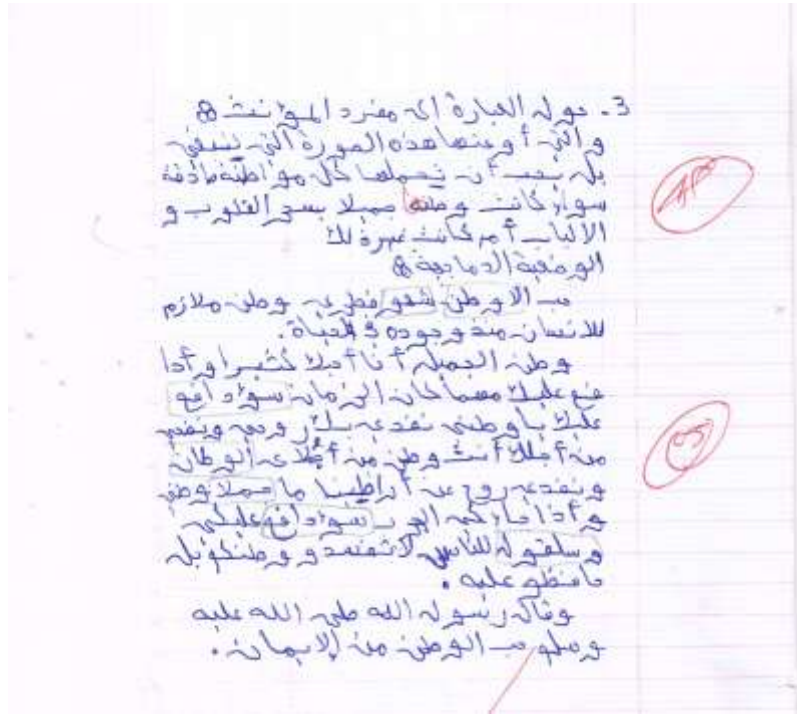 3- حوله العبارة الى مفرد المؤنث:
والتي أو عنها هذه الصورة التي ينبغي
بل يجب أن تحملها كل مواطنة صادقة
سواء كانت وطنها جميلا يسحر القلوب و
الالباب أم كانت غير ذلك
الوضعية الدماجية:
حب الاوطن شعور فطري وطن ملازم
للانسان منذ وجوده في الحياة.
وطن الجميل أنا أحبك كثيرا و أدا
فع عليك مهما كان الزمان سوء دافع
عليك يا وطني نفدي بك روحي ونفسي
من أجلك أنت وطن من أغلا عن الوطان
ونفدي روح عن أراضينا ما جملا وطني
و أدا الحرب سوء دافع عليكي
و سلقوله للناس لا تفسدو وطنكو بل
حافظو عليه.
وقال رسول الله صلى الله عليه
وسلم حب الوطن من الايمان.